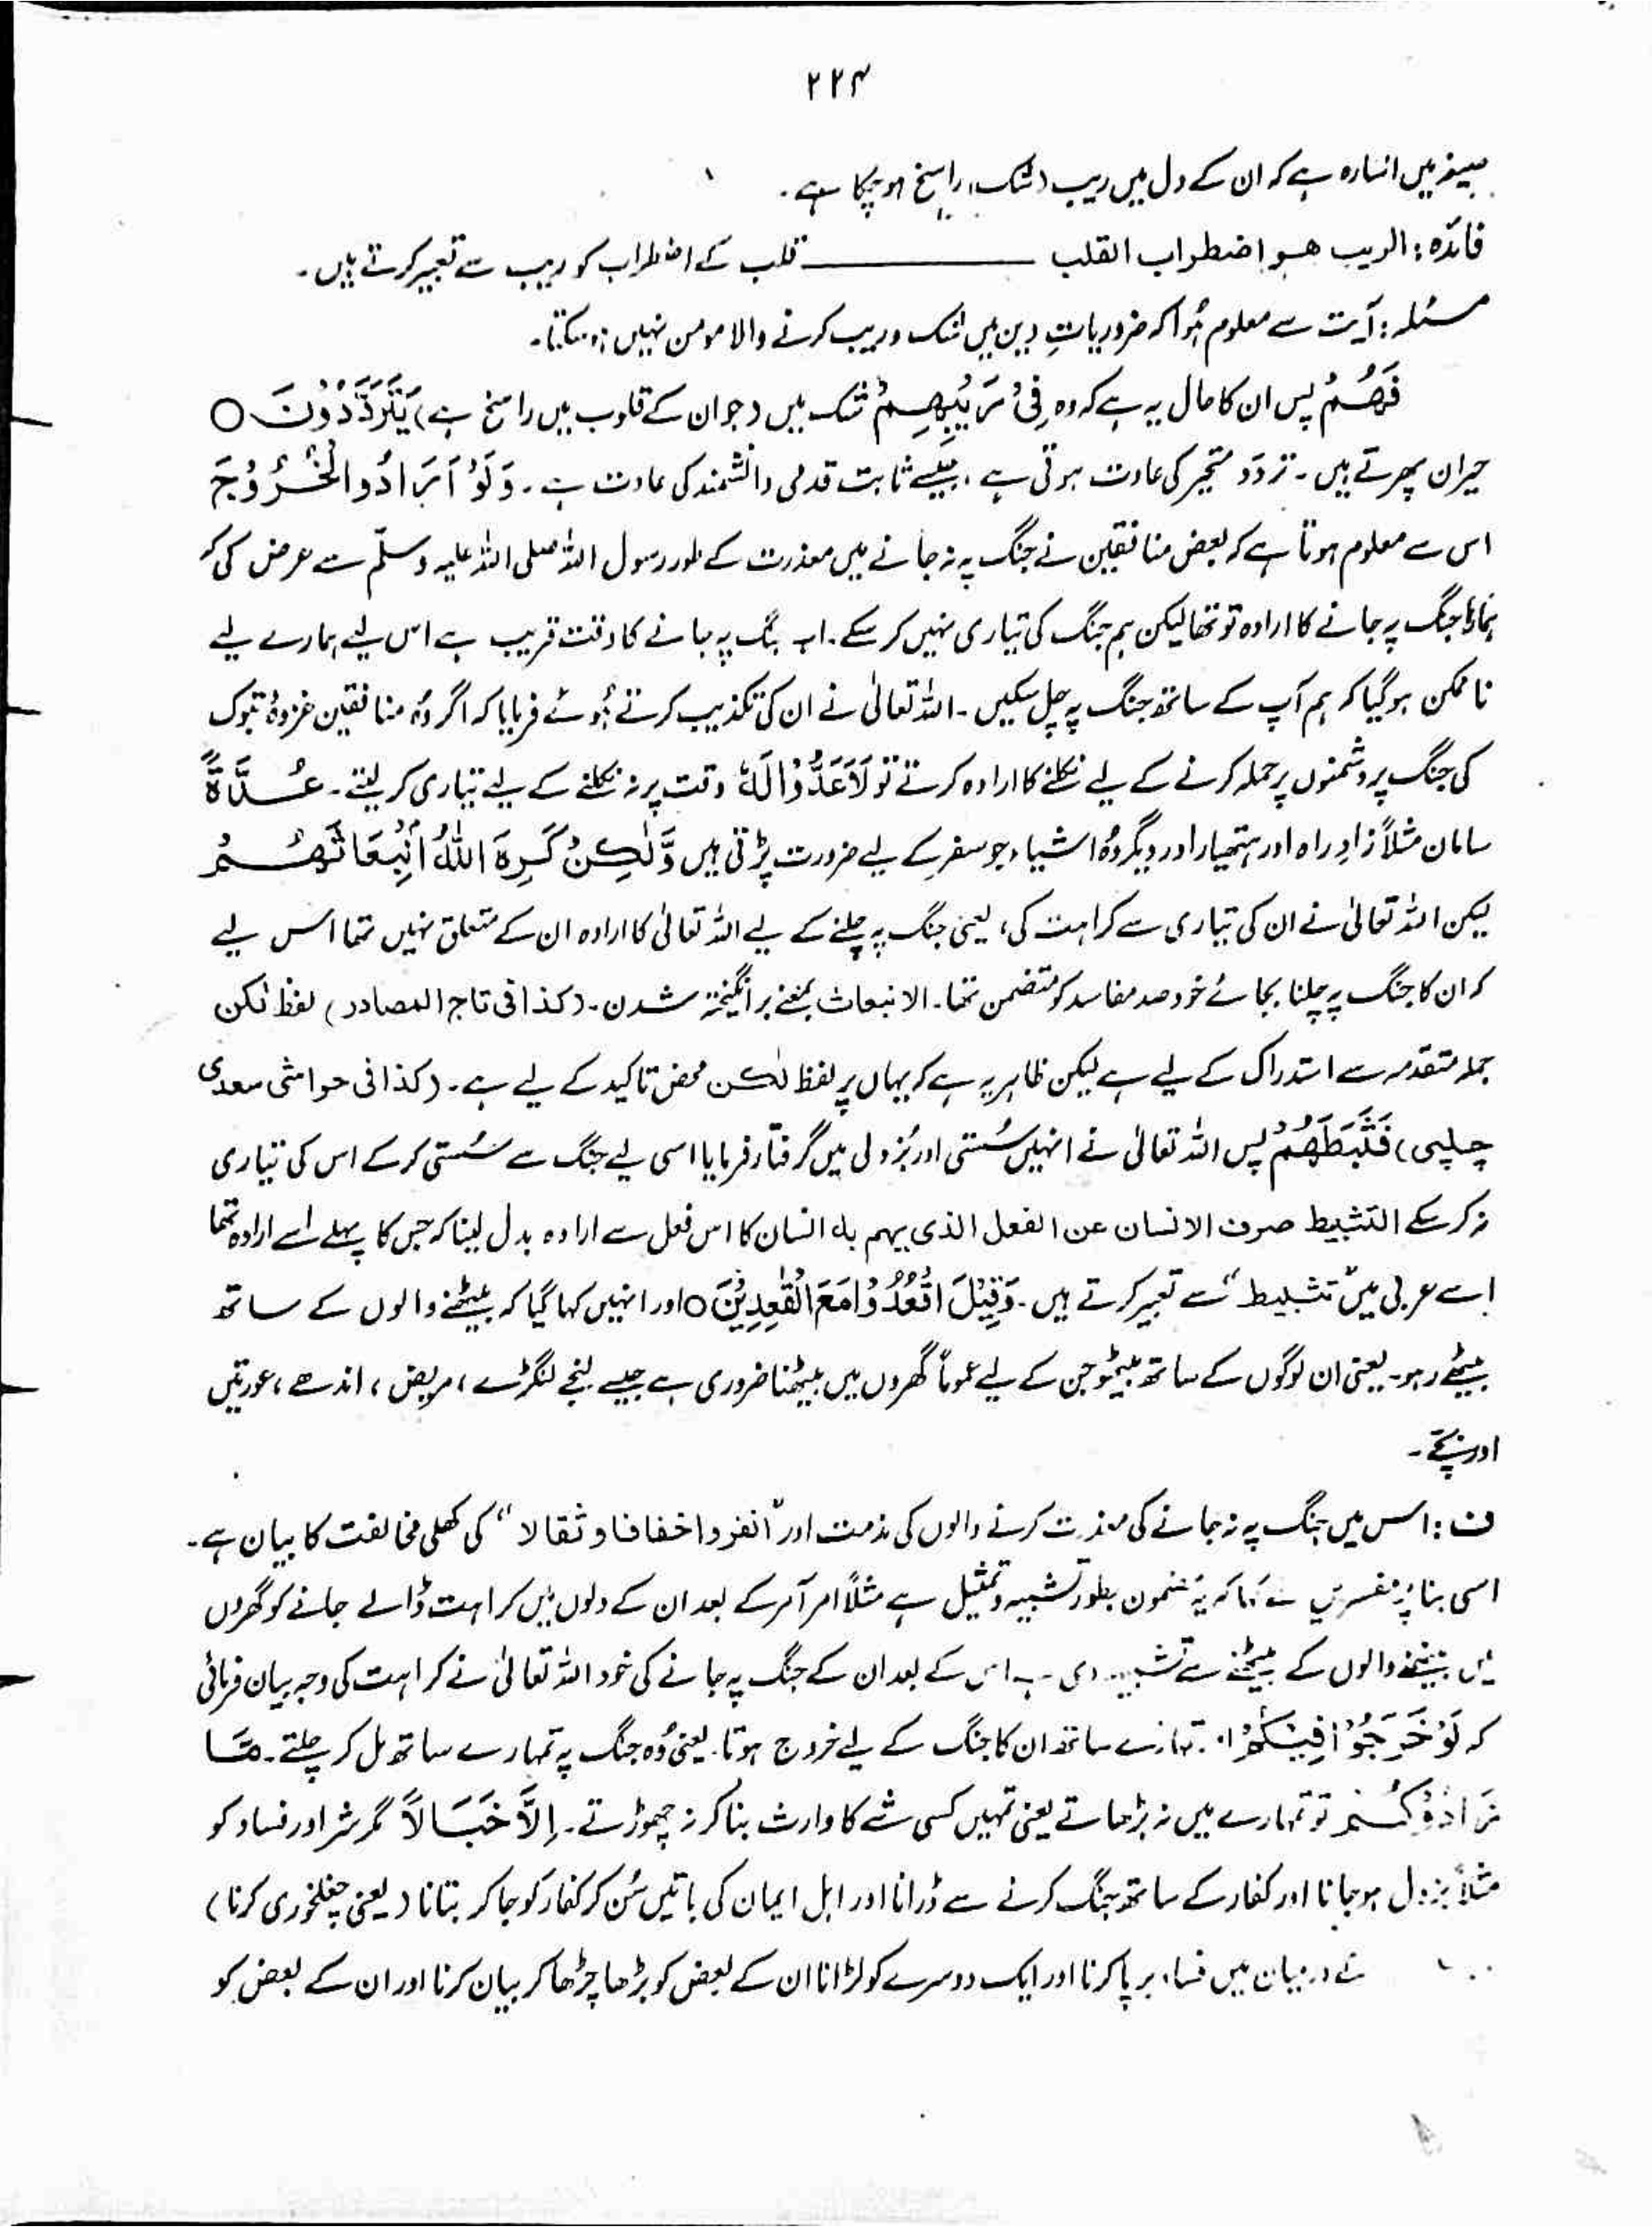 ۲۲۴
صیغہ میں اشارہ ہے کہ ان کے دل میں ریب (شک) راسخ ہو چکا ہے۔
فائدہ: الریب ھو اضطراب القلب ———— قلب کے اضطراب کو ریب سے تعبیر کرتے ہیں۔
مسئلہ: آیت سے معلوم ہُوا کہ ضروریاتِ دین میں شک و ریب کرنے والا مومن نہیں ہو سکتا۔
فَھُمْ پس ان کا حال یہ ہے کہ وہ فِیْ رَیْبِھِمْ شک میں (جو ان کے قلوب میں راسخ ہے) یَتَرَدَّدُوْنَ ○
حیران پھرتے ہیں۔ تردّد متحیر کی عادت ہوتی ہے، جیسے ثابت قدمی دانشمند کی عادت ہے۔ وَلَوْ اَرَادُوا الْخُرُوْجَ
اس سے معلوم ہوتا ہے کہ بعض منافقین نے جنگ پہ نہ جانے میں معذرت کے طور رسول اللہ صلی اللہ علیہ وسلّم سے عرض کی کہ
ہمارا جنگ پہ جانے کا ارادہ تو تھا لیکن ہم جنگ کی تیاری نہیں کر سکے۔ اب جنگ پہ جانے کا وقت قریب ہے اس لیے ہمارے لیے
ناممکن ہو گیا کہ ہم آپ کے ساتھ جنگ پہ چل سکیں۔ اللہ تعالیٰ نے ان کی تکذیب کرتے ہُوئے فرمایا کہ اگر وُہ منافقین غزوۂ تبوک
کی جنگ پر دشمنوں پر حملہ کرنے کے لیے نکلنے کا ارادہ کرتے تو لَاَعَدُّوْا لَہٗ وقت پر نہ نکلنے کے لیے تیاری کر لیتے۔ عُدَّۃً
سامان مثلاً زادِ راہ اور ہتھیار اور دیگر وُہ اشیاء جو سفر کے لیے ضرورت پڑتی ہیں وَّلٰکِنْ کَرِہَ اللّٰہُ انْۢبِعَاثَھُمْ
لیکن اللہ تعالیٰ نے ان کی تیاری سے کراہت کی، یعنی جنگ پہ چلنے کے لیے اللہ تعالیٰ کا ارادہ ان کے متعلق نہیں تھا اس لیے
کہ ان کا جنگ پہ چلنا بجائے خود صد مفاسد کو متضمن تھا۔ الانبعاث بمعنے برانگیختہ شدن۔ (کذا فی تاج المصادر) لفظ لٰکن
جملہ متقدمہ سے استدراک کے لیے ہے لیکن ظاہر یہ ہے کہ یہاں پر لفظ لٰکن محض تاکید کے لیے ہے۔ (کذا فی حواشی سعدی
چلپی) فَثَبَّطَھُمْ پس اللہ تعالیٰ نے انہیں سُستی اور بُزدلی میں گرفتار فرمایا اسی لیے جنگ سے سُستی کر کے اس کی تیاری
نہ کر سکے التثبیط صرف الانسان عن الفعل الذی یھم بہ انسان کا اس فعل سے ارادہ بدل لینا کہ جس کا پہلے اسے ارادہ تھا
اسے عربی میں "تثبیط" سے تعبیر کرتے ہیں۔ وَقِیْلَ اقْعُدُوْا مَعَ الْقٰعِدِیْنَ ○ اور انہیں کہا گیا کہ بیٹھنے والوں کے ساتھ
بیٹھے رہو۔ یعنی ان لوگوں کے ساتھ بیٹھو جن کے لیے عموماً گھروں میں بیٹھنا ضروری ہے جیسے لنجے لنگڑے، مریض، اندھے، عورتیں
اور بچّے۔
ف: اس میں جنگ پہ نہ جانے کی معذرت کرنے والوں کی مذمت اور "انفروا خفافا وثقالا" کی کھلی مخالفت کا بیان ہے۔
اسی بنا پر مفسرین نے کہا کہ یہ مضمون بطور تشبیہ و تمثیل ہے مثلاً امر آمر کے بعد ان کے دلوں میں کراہت ڈالے جانے کو گھروں
میں بیٹھنے والوں کے بیٹھنے سے تشبیہ دی ہے اس کے بعد ان کے جنگ پہ جانے کی خود اللہ تعالیٰ نے کراہت کی وجہ بیان فرمائی
کہ لَوْ خَرَجُوْا فِیْکُمْ تمہارے ساتھ ان کا جنگ کے لیے خروج ہوتا۔ یعنی وُہ جنگ پہ تمہارے ساتھ مل کر چلتے۔ مَّا
زَادُوْکُمْ تو تمہارے میں نہ بڑھاتے یعنی تمہیں کسی شے کا وارث بنا کر نہ چھوڑتے۔ اِلَّا خَبَالًا مگر شر اور فساد کو
مثلاً بزدل ہو جانا اور کفار کے ساتھ جنگ کرنے سے ڈرانا اور اہل ایمان کی باتیں سُن کر کفار کو جا کر بتانا (یعنی چغلخوری کرنا)
کے درمیان میں فساد برپا کرنا اور ایک دوسرے کو لڑانا ان کے بعض کو بڑھا چڑھا کر بیان کرنا اور ان کے بعض کو